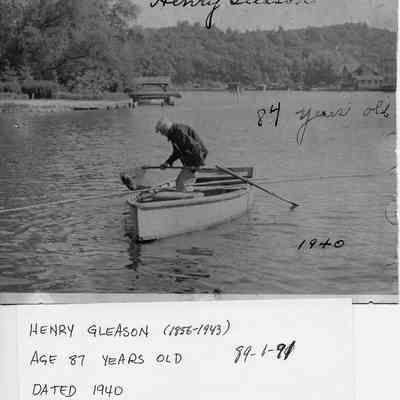 Henry Gleason
84 years old
1940
HENRY GLEASON (1856-1943)
AGE 87 YEARS OLD 99-1-91
DATED 1940